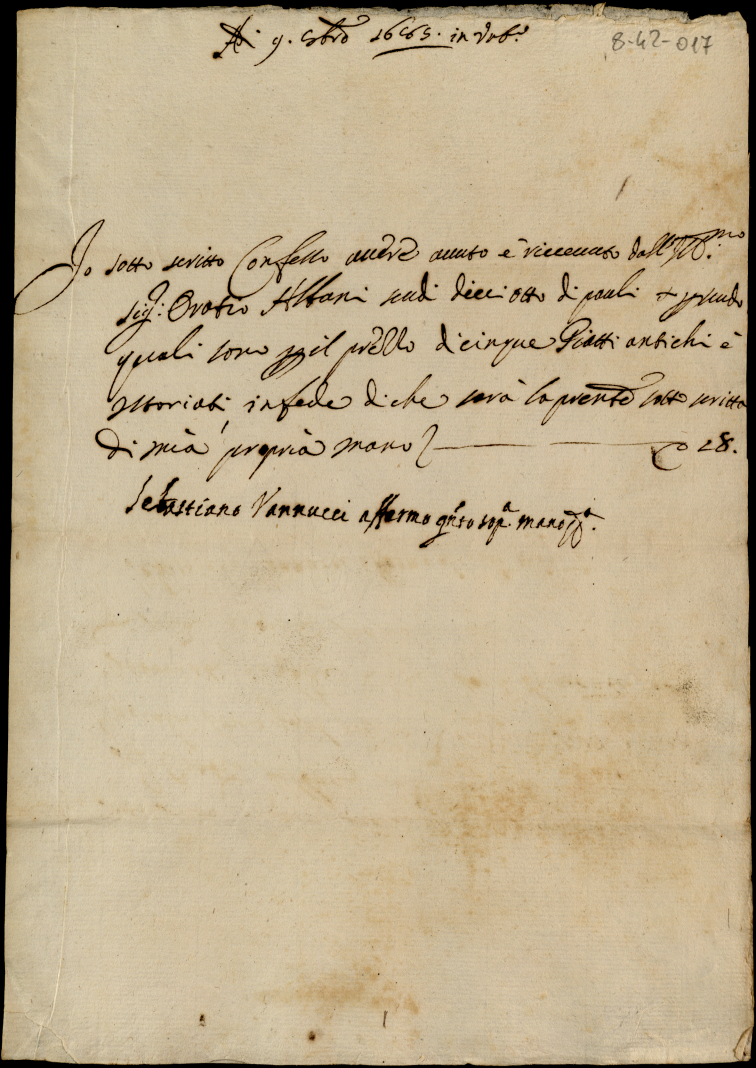 Adi 9. 8bre 1665. in Urb.o
8-42-017
Io sotto scritto Confesso avere avuto e riceuuto dall' Ill.mo
Sig.r Oratio Albani scudi dieci otto di pauli X per scudo
quali sono p il prezzo di cinque Piatti antichi è
istoriati in fede di che sarà la presente sotto scritta
di mià propria mano — 18.
Sebastiano Vannucci affermo q.nto sop.a mano pp.a